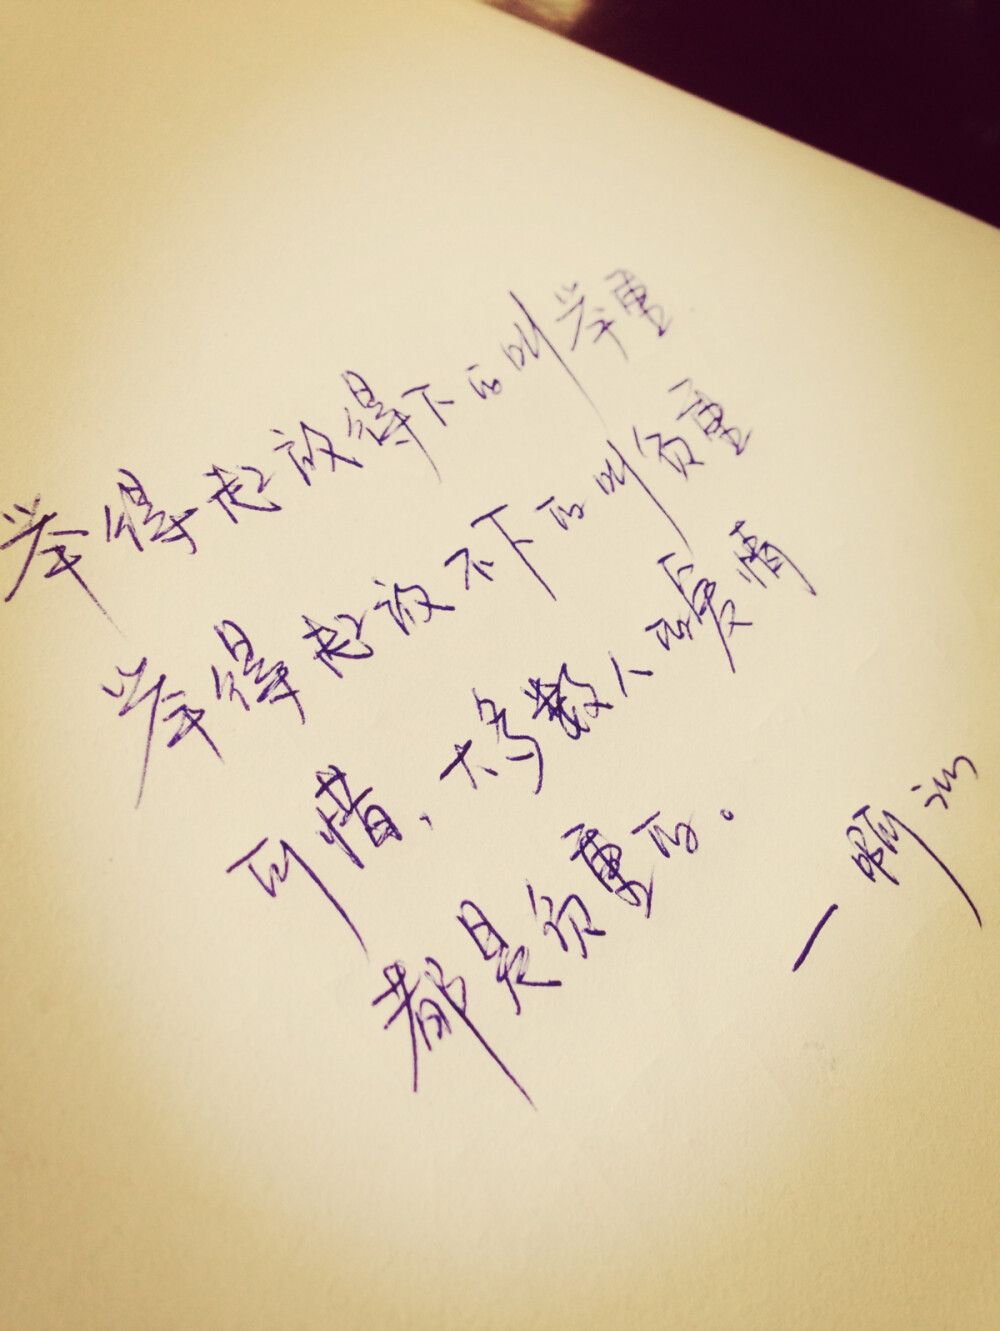 举得起放得下的叫举重
举得起放不下的叫负重
可惜,大多数人的爱情
都是负重的。
一啊